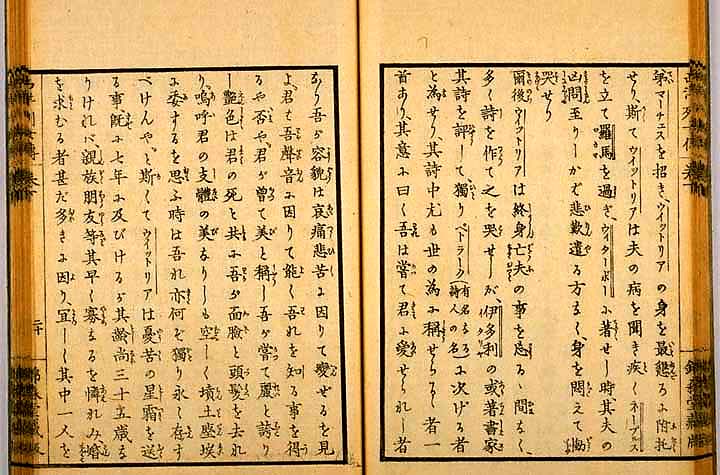 弟マーチェスを招き、ウイットリアの身を最懇ろに附托
せり、斯てウイットリアは夫の病を聞き疾くネープルス
を立て羅馬を過ぎ、ウィターボーに著せし時其夫の
凶問至りしかば悲歎遣る方なく、身を悶えて慟
哭せり
爾後ウィットリアは終身亡夫の事を忘るゝ間なく、
多く詩を作て之を哭せしが、伊多利の或著書家
其詩を評して、獨りペトラーク(有名なる詩人の名)に次げる者
と為せり、其詩中尤も世の為に稱せらるゝ者一
首あり、其意に曰く吾は嘗て君に愛せられし者
なり吾が容貌は哀痛悲苦に因りて變ぜるを見
よ、君は吾聲音に因りて能く吾れを知る事を得
るや否や、君が曾て美と稱し吾が嘗て麗と誇り
し艶色は君の死と共に吾が面臉と頭髪を去れ
り、嗚呼君の支體の美なりしも空しく墳土
に委するを思ふ時は吾れ亦何ぞ獨り永く存す
べけんや、と斯くてウイットリアは憂苦の星霜を送
る事既に七年に及びけるが其齢尚三十五歳な
りければ、親族朋友等其早く寡なるを憐れみ、婚
を求むる者甚だ多きに因り、宜しく其中一人を
二十